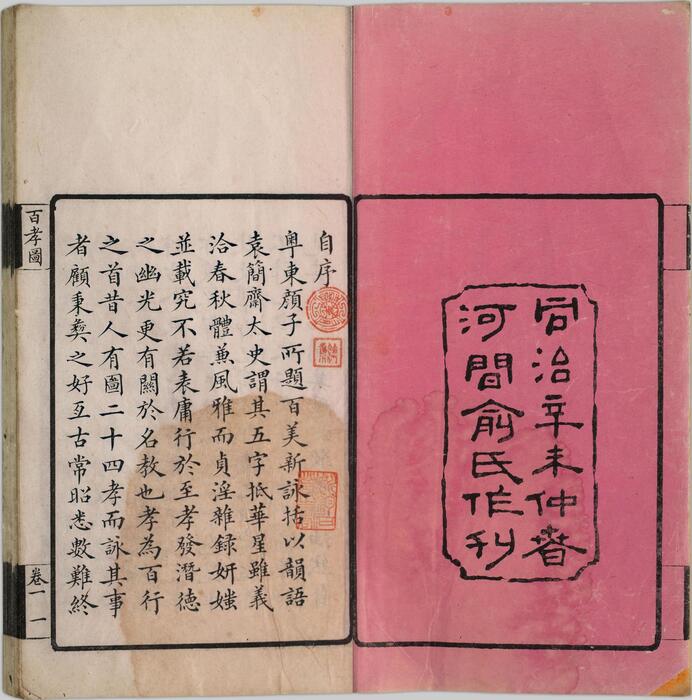 同治辛未仲春
河間俞氏作刊
自序
粵東顔子所題百美新詠括以韻語
袁簡齋太史謂其五字抵華星雖義
洽春秋體兼風雅而貞淫雜録妍媸
並載究不若表庸行於至孝發潛德
之幽光更有關於名教也孝為百行
之首昔人有圖二十四孝而詠其事
者顧秉彝之好亙古常昭悉數難終
百孝圖
卷一
一